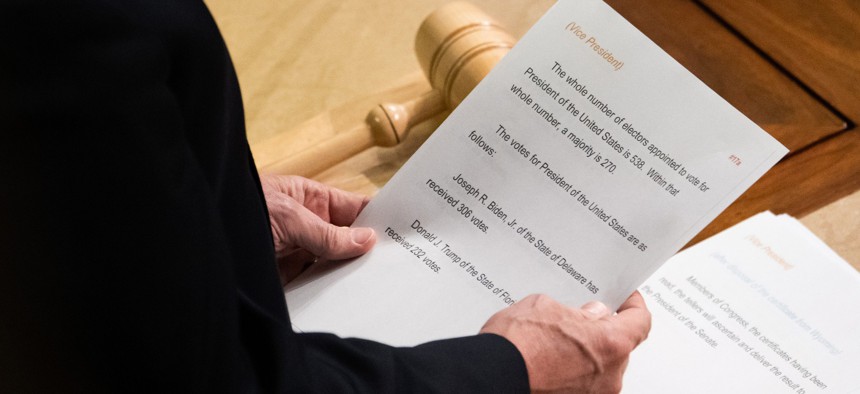 (Vice President)
The whole number of electors appointed to vote for
President of the United States is 538. Within that
whole number, a majority is 270.
#17a
The votes for President of the United States are as
follows:
Joseph R. Biden, Jr. of the State of Delaware has
received 306 votes.
Donald J. Trump of the State of
received 232 votes.
(Vice President)
Members of Congress, the certificates having been
read, the tellers will ascertain and deliver the result to
the President of the Senate.